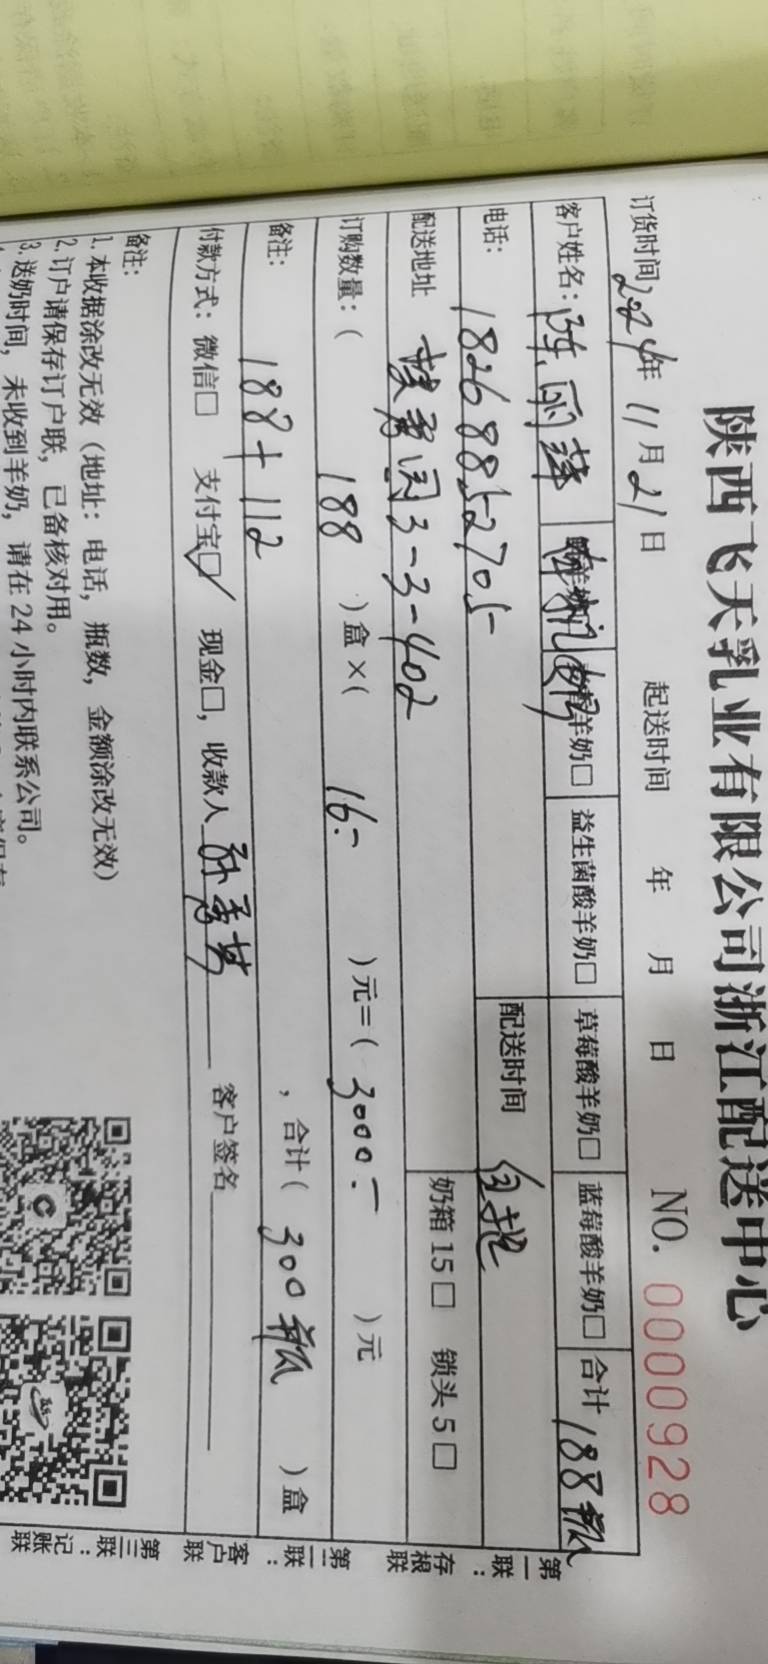 陕西飞天乳业有限公司浙江配送中心
订货时间2024年11月21日 起送时间 年 月 日 NO. 0000928
客户姓名：陈雨 羊奶□ 益生菌酸羊奶□ 草莓酸羊奶□ 蓝莓酸羊奶□ 合计188瓶
电话：18268852705 配送时间 自提
配送地址 3-3-402 奶箱15□ 锁头5□
订购数量：（ 188 ）盒×（ 16.- ）元=（ 3000.- ）元
备注： 188+112 ，合计（ 300瓶 ）盒
付款方式：微信□ 支付宝☑ 现金□，收款人 孙秀 客户签名
备注：
1. 本收据涂改无效（地址：电话，瓶数，金额涂改无效）
2. 订户请保存订户联，已备核对用。
3. 送奶时间，未收到羊奶，请在24小时内联系公司。
第一联：存根联
第二联：客户联
第三联：记账联